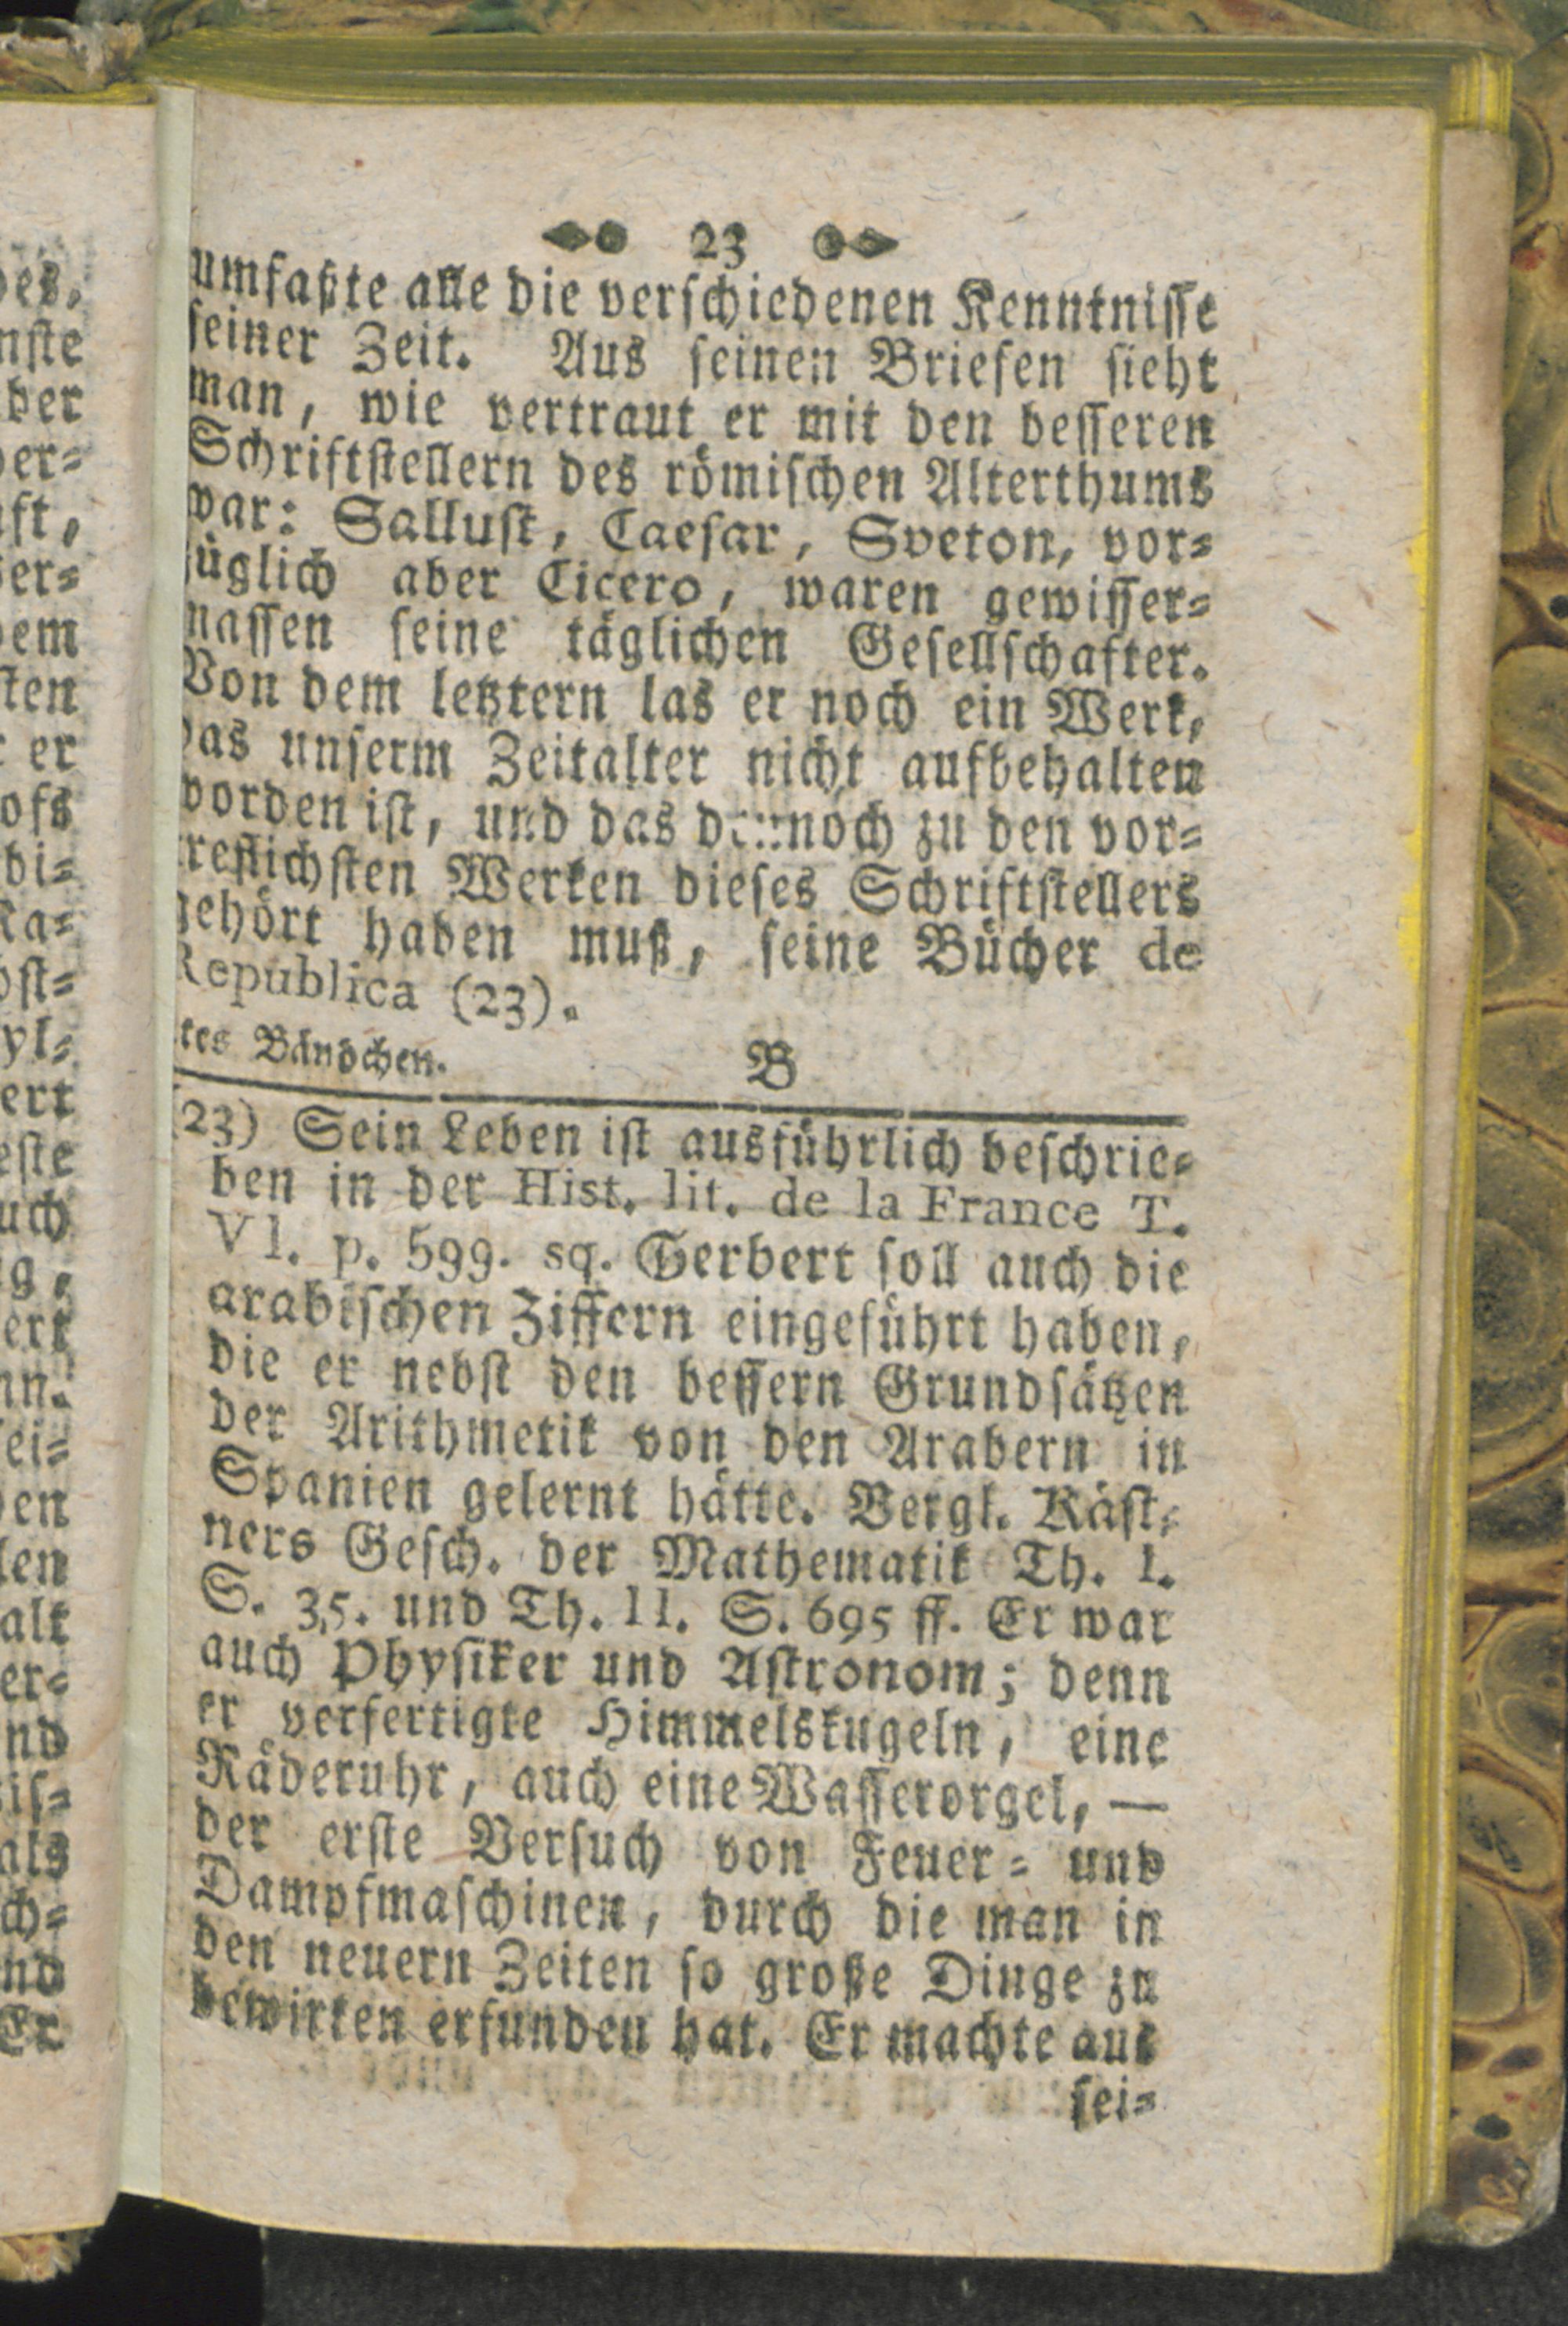 23
umfaßte alle die verschiedenen Kenntnisse
seiner Zeit. Aus seinen Briefen sieht
man, wie vertraut er mit den besseren
Schriftstellern des römischen Alterthums
war: Sallust, Caesar, Sveton, vor-
züglich aber Cicero, waren gewisser-
massen seine täglichen Gesellschafter.
Von dem letztern las er noch ein Werk,
das unserm Zeitalter nicht aufbehalten
worden ist, und das dennoch zu den vor-
treflichsten Werken dieses Schriftstellers
gehört haben muß, seine Bücher de
Republica (23).
tes Bändchen. B
(23) Sein Leben ist ausführlich beschrie-
ben in der Hist. lit. de la France T.
VI. p. 599. sq. Gerbert soll auch die
arabischen Ziffern eingeführt haben,
die er nebst den bessern Grundsätzen
der Arithmetik von den Arabern in
Spanien gelernt hätte. Vergl. Käst-
ners Gesch. der Mathematik Th. I.
S. 35. und Th. II. S. 695 ff. Er war
auch Physiker und Astronom; denn
er verfertigte Himmelskugeln, eine
Räderuhr, auch eine Wasserorgel, —
der erste Versuch von Feuer- und
Dampfmaschinen, durch die man in
den neuern Zeiten so große Dinge zu
bewirken erfunden hat. Er machte aus
sei-